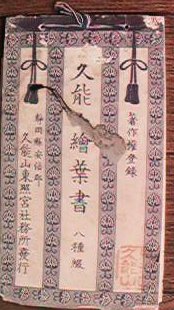 著作權登錄
久能繪葉書
八種綴
靜岡縣安倍郡
久能山東照宮社務所發行
久能山